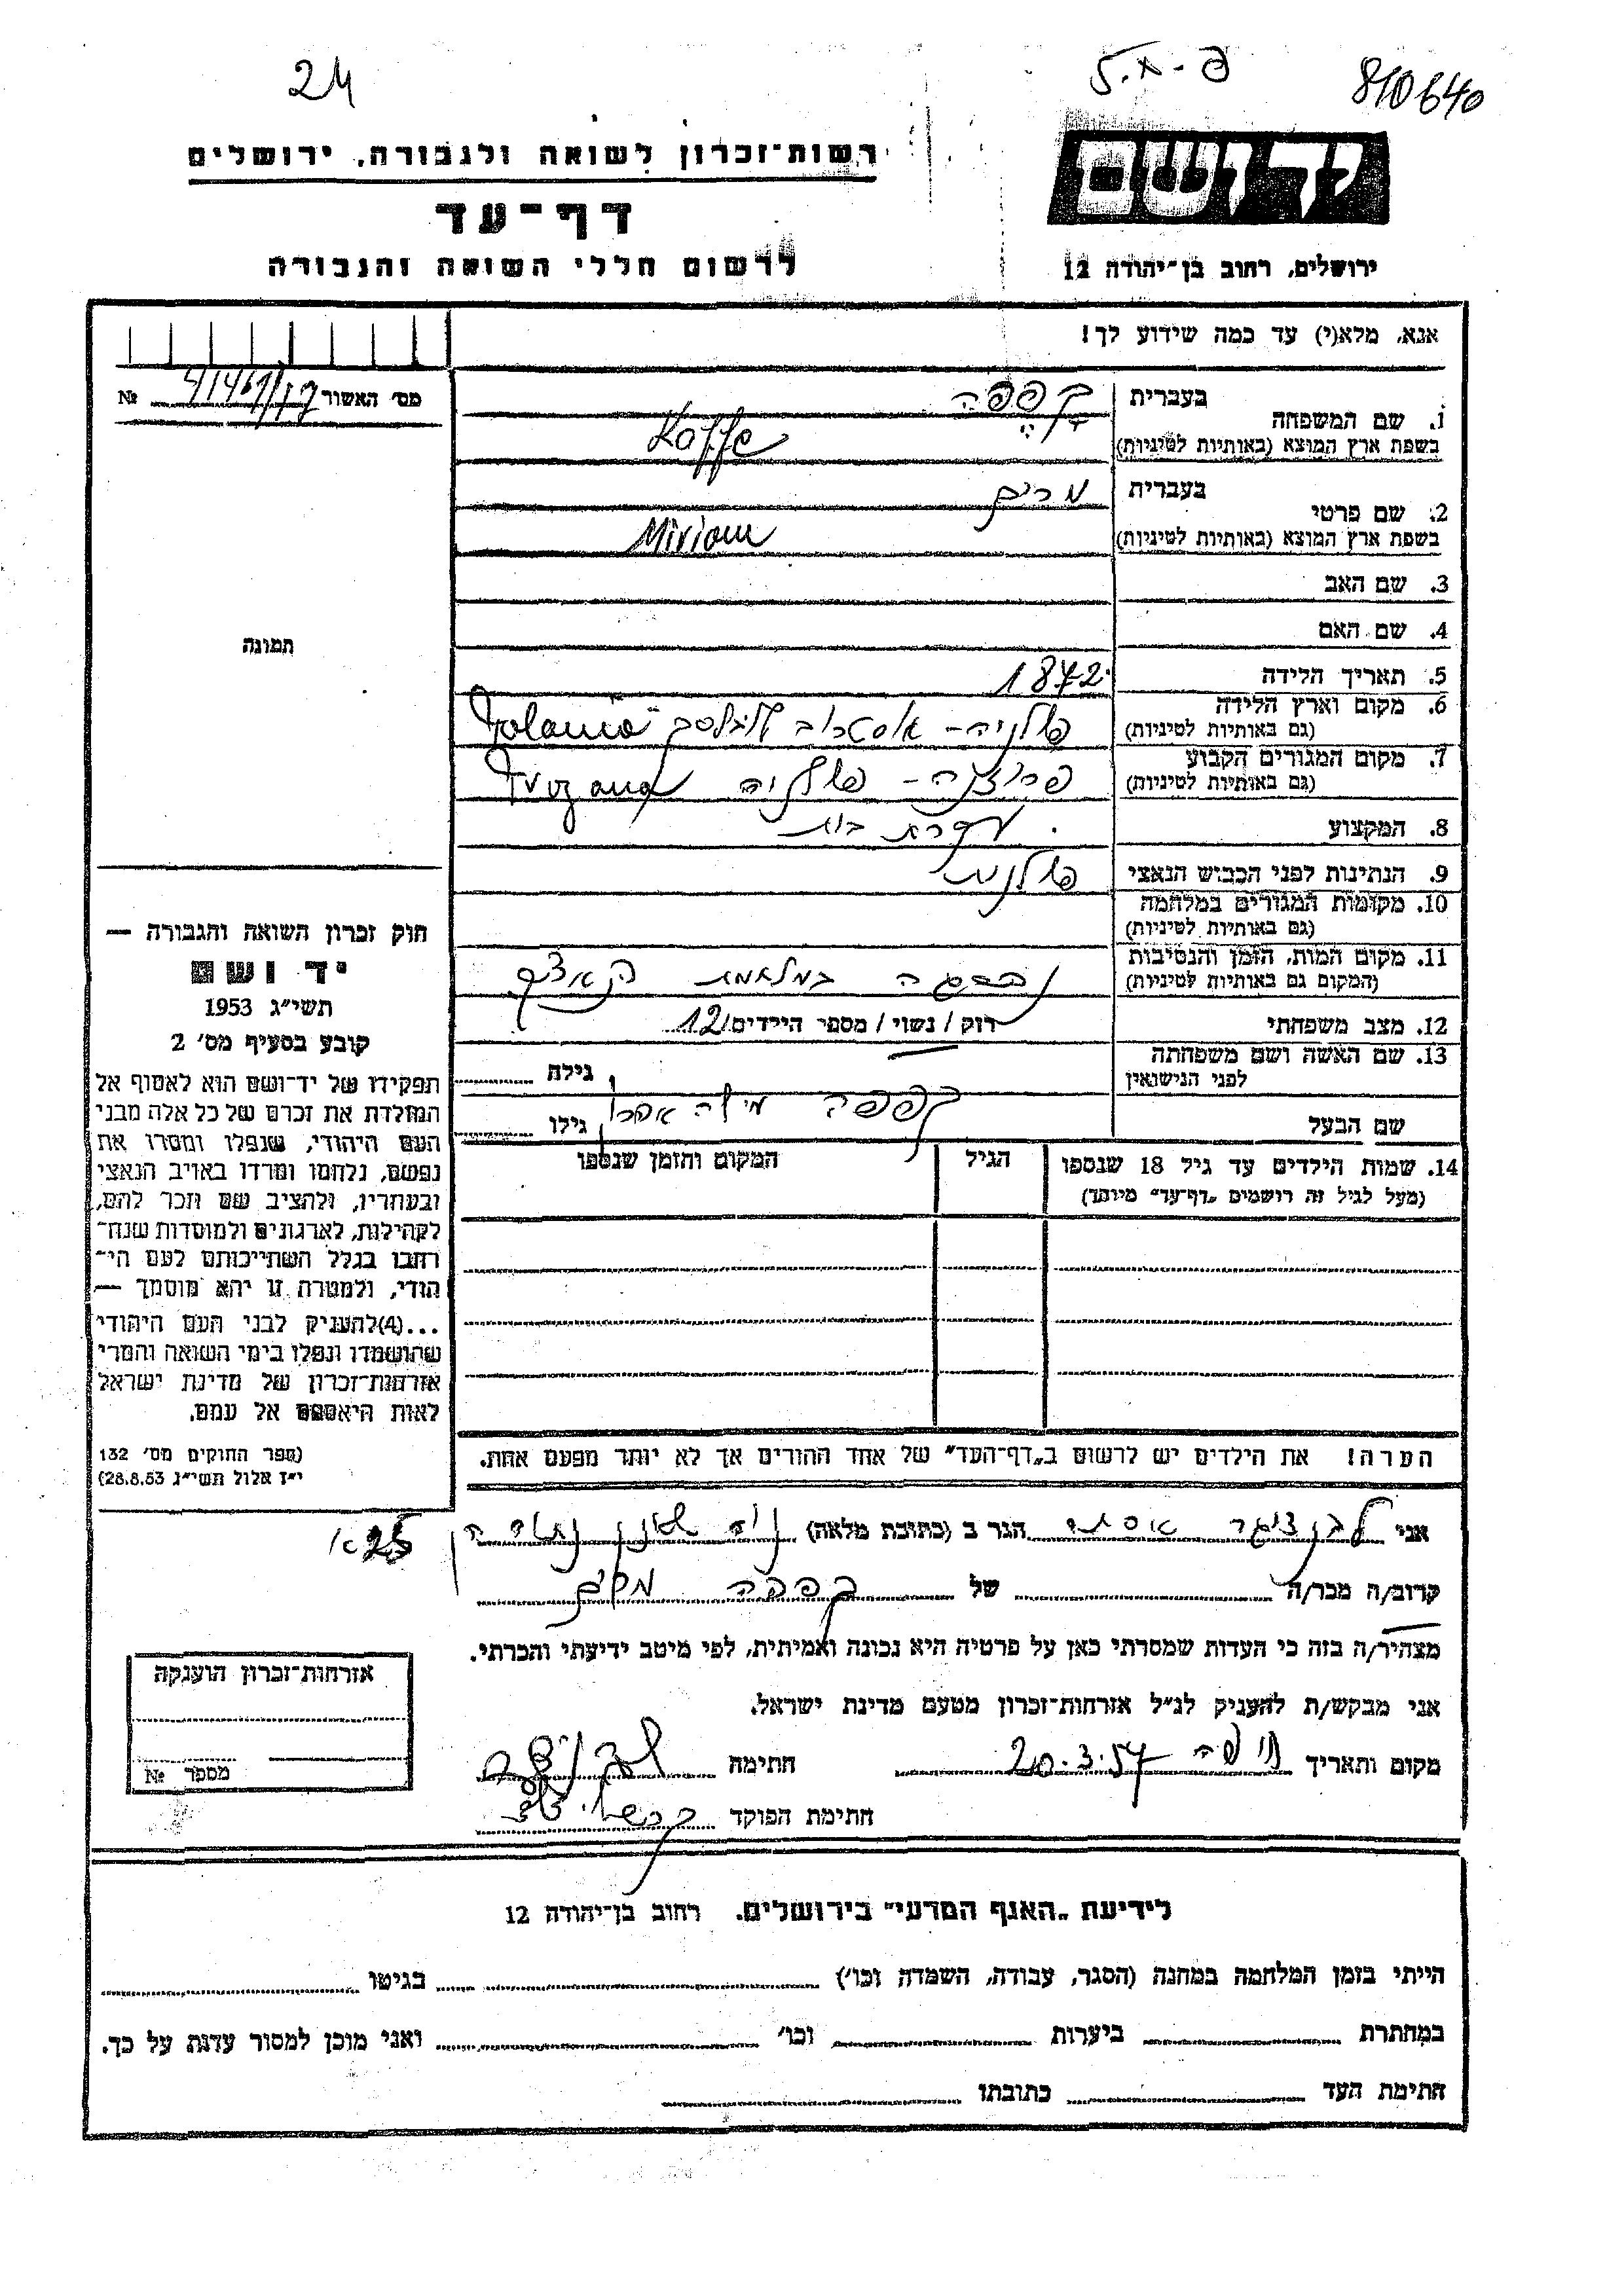 24
810640
רשות־זכרון לשואה ולגבורה, ירושלים
יד ושם
דף־עד
לרשום חללי השואה והגבורה
ירושלים, רחוב בן־יהודה 12
אנא, מלא(י) עד כמה שידוע לך!
מס׳ האשור №
1. שם המשפחה בעברית קפפה
בשפת ארץ המוצא (באותיות לטיניות) Kaffe
2. שם פרטי בעברית מרים
בשפת ארץ המוצא (באותיות לטיניות) Miriam
3. שם האב
4. שם האם
5. תאריך הלידה 1872
6. מקום וארץ הלידה (גם באותיות לטיניות) פולניה - Polania
7. מקום המגורים הקבוע (גם באותיות לטיניות) פרוזנה - פולניה Pruzana
8. המקצוע עקרת בית
9. הנתינות לפני הכבוש הנאצי פולנית
10. מקומות המגורים במלחמה (גם באותיות לטיניות)
11. מקום המות, הזמן והנסיבות (המקום גם באותיות לטיניות) נספתה במלחמת
12. מצב משפחתי רוק / נשוי / מספר הילדים 12
13. שם האשה ושם משפחתה לפני הנישואין גילה
שם הבעל קפפה גילו
14. שמות הילדים עד גיל 18 שנספו (מעל לגיל זה רושמים „דף־עד״ מיוחד) הגיל המקום והזמן שנספו
הערה! את הילדים יש לרשום ב„דף־העד״ של אחד ההורים אך לא יותר מפעם אחת.
תמונה
חוק זכרון השואה והגבורה —
יד ושם
תשי״ג 1953
קובע בסעיף מס׳ 2
תפקידו של יד־ושם הוא לאסוף אל
המולדת את זכרם של כל אלה מבני
העם היהודי, שנפלו ומסרו את
נפשם, נלחמו ומרדו באויב הנאצי
ובעוזריו, ולהציב שם וזכר להם,
לקהילות, לארגונים ולמוסדות שנח־
רבו בגלל השתייכותם לעם הי־
הודי, ולמטרה זו יהא מוסמך —
...(4)להעניק לבני העם היהודי
שהושמדו ונפלו בימי השואה והמרי
אזרחות־זכרון של מדינת ישראל
לאות היאספם אל עמם.
(ספר החוקים מס׳ 132
י״ז אלול תשי״ג 28.8.53)
אני אסתר הגר ב (כתובת מלאה) 25
קרוב/ה מכר/ה של קפפה מרים
מצהיר/ה בזה כי העדות שמסרתי כאן על פרטיה היא נכונה ואמיתית, לפי מיטב ידיעתי והכרתי.
אני מבקש/ת להעניק לנ״ל אזרחות־זכרון מטעם מדינת ישראל.
מקום ותאריך חיפה 20.3.57 חתימה
חתימת הפוקד
אזרחות־זכרון הוענקה
מספר №
לידיעת „האגף המדעי״ בירושלים, רחוב בן־יהודה 12
הייתי בזמן המלחמה במחנה (הסגר, עבודה, השמדה וכו׳) בגיטו
במחתרת ביערות וכו׳ ואני מוכן למסור עדות על כך.
חתימת העד כתובתו